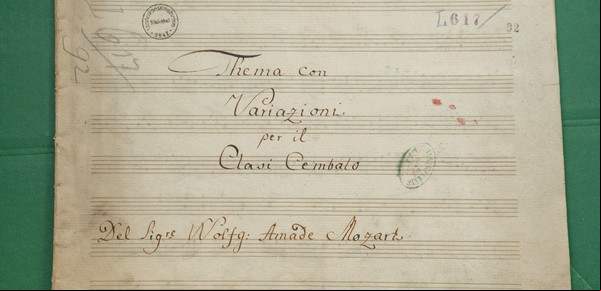 L. 617
92
617
92
Thema con
Variazioni
per il
Clavi Cembalo
Del Sigre Wolfg: Amade Mozart